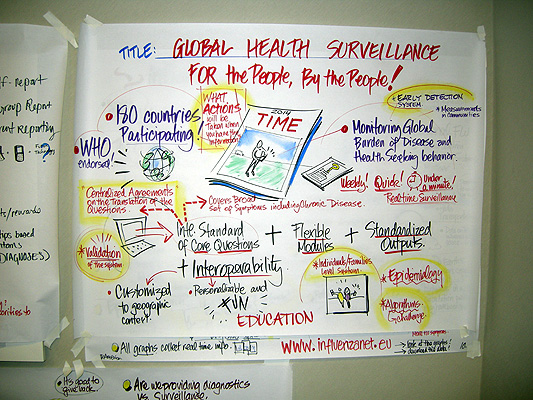 TITLE: GLOBAL HEALTH SURVEILLANCE
FOR the People, By the People!
WHAT
Actions
will be
Taken when
you have the
information
2014
TIME
* EARLY DETECTION
SYSTEM
* Measurements
in communities
• 180 countries
Participating
• WHO
endorsed!
• Monitoring Global
Burden of Disease and
Health Seeking behavior.
Weekly! Quick! Under
a minute!
Real time Surveillance
* Centralized Agreements
on the Translation of the
Questions.
Covers Broad
Set of Symptoms including Chronic Disease.
Standard
of Core Questions
+ Flexible
Modules
+ Standardized
Outputs.
* Validation
of the system
+ Interoperability
* Individuals/Families
Level System
* Epidemiology
* Algorithms
Challenge
• Customized
to geographic
context.
• Personalizable and
FUN
EDUCATION
All graphs collect real time info.
www.influenzanet.eu
→ look at the graphs!
→ download the data!
• It's good to
give back.
Are we providing diagnostics
vs. Surveillance.
Report
group Report
Reporting
/rewards
tips based
DIAGNOSES)
to